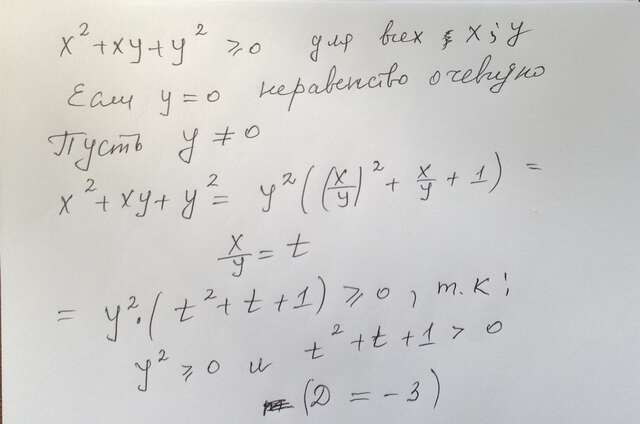 x² + xy + y² ⩾ 0 для всех x; y
Если y = 0 неравенство очевидно
Пусть y ≠ 0
x² + xy + y² = y² ((x/y)² + x/y + 1) =
x/y = t
= y² · (t² + t + 1) ⩾ 0, т.к:
y² ⩾ 0 и t² + t + 1 > 0
(D = -3)